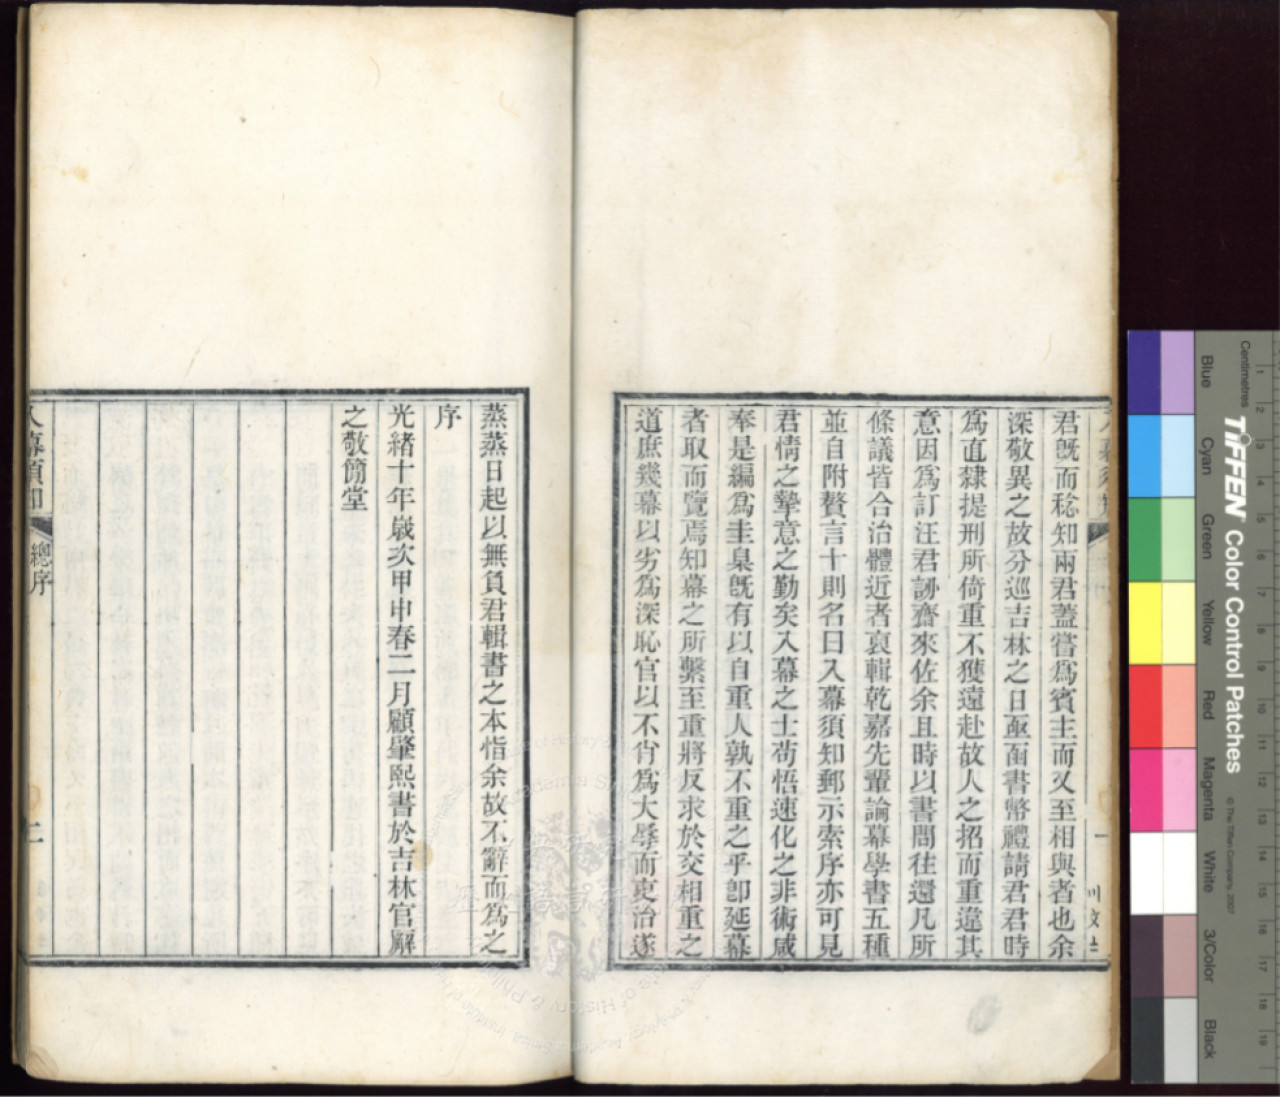 君旣而稔知兩君蓋嘗爲賓主而又至相與者也余
深敬異之故分巡吉林之日亟函書幣禮請君君時
爲直隸提刑所倚重不獲遠赴故人之招而重違其
意因爲訂汪君謝齋來佐余且時以書問往還凡所
條議皆合治體近者裒輯乾嘉先輩論幕學書五種
並自附贅言十則名曰入幕須知郵示索序亦可見
君情之摯意之勤矣入幕之士苟悟速化之非術咸
奉是編爲圭臬旣有以自重人孰不重之乎卽延幕
者取而覽焉知幕之所繫至重將反求於交相重之
道庶幾幕以劣爲深恥官以不肖爲大辱而吏治遂
蒸蒸日起以無負君輯書之本恉余故不辭而爲之
序
光緒十年歲次甲申春二月顧肇熙書於吉林官廨
之敬簡堂
入幕須知
總序
二
Centimetres
TIFFEN Color Control Patches
© The Tiffen Company, 2007
Blue
Cyan
Green
Yellow
Red
Magenta
White
3/Color
Black
1
2
3
4
5
6
7
8
9
10
11
12
13
14
15
16
17
18
19